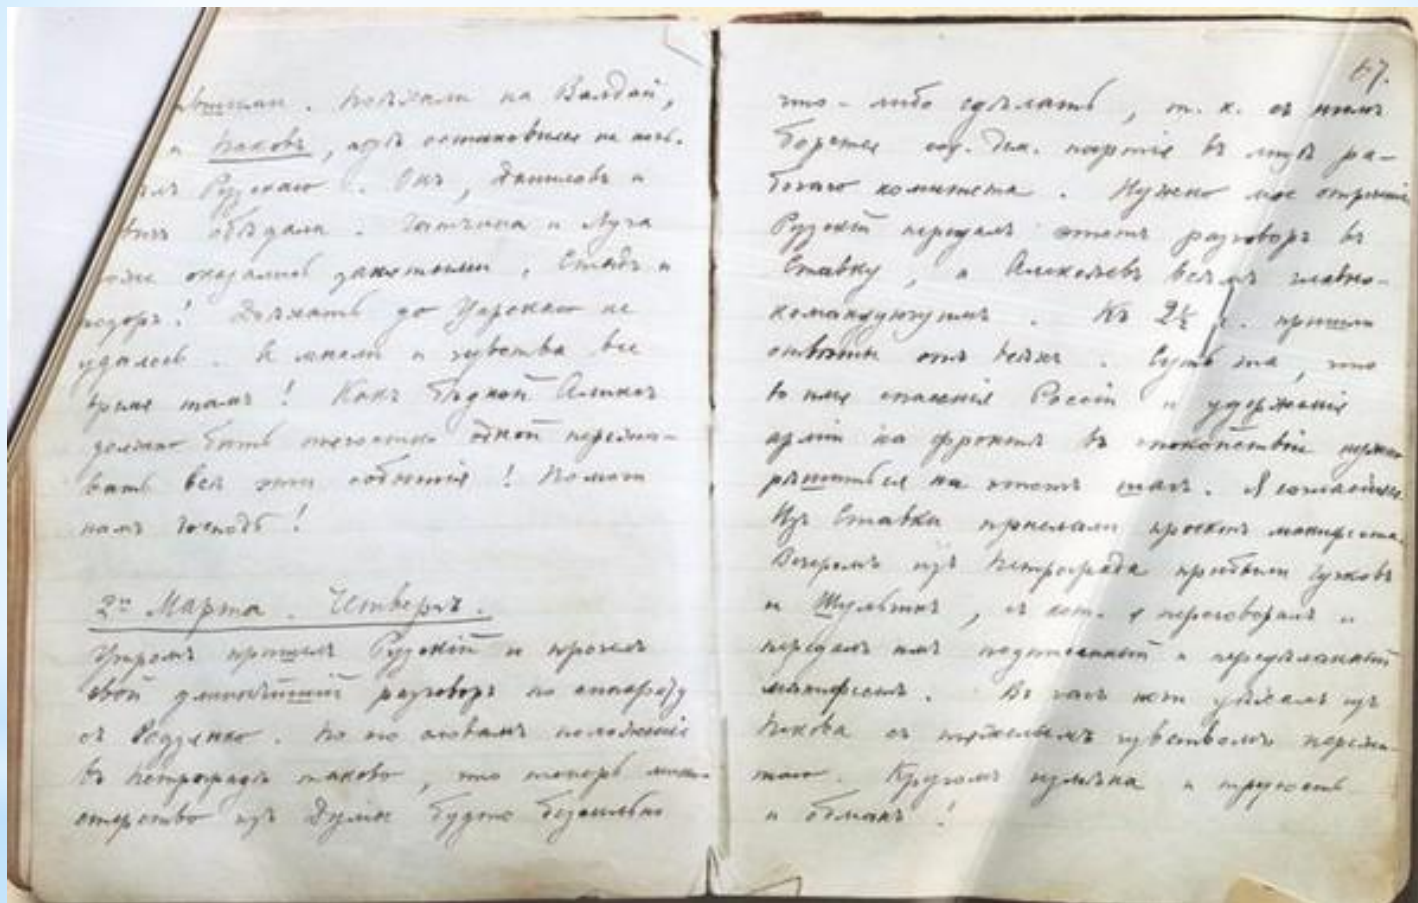 Поѣхали на Валдай,
и Псковъ, гдѣ остановился на ночь.
Рузскаго. Онъ, Даниловъ и
обѣдали. Гатчина и Луга
тоже оказались занятыми. Стыдъ и
позоръ! Доѣхать до Царскаго не
удалось. А мысли и чувства все
время тамъ! Какъ бѣдной Аликсъ
должно быть тягостно одной пережи-
вать всѣ эти событія! Помоги
намъ Господь!
2го Марта. Четвергъ.
Утромъ пришелъ Рузскій и прочелъ
свой длиннѣйшій разговоръ по аппарату
съ Родзянко. По его словамъ положеніе
въ Петроградѣ таково, что теперь мини-
стерство изъ Думы будто безсильно
67.
что-либо сдѣлать, т. к. съ нимъ
борется соц. дем. партія въ лицѣ ра-
бочаго комитета. Нужно мое отреченіе
Рузскій передалъ этотъ разговоръ въ
Ставку, а Алексѣевъ всѣмъ главно-
командующимъ. Къ 2½ ч. пришли
отвѣты отъ всѣхъ. Суть та, что
во имя спасенія Россіи и удержанія
арміи на фронтѣ въ спокойствіи нужно
рѣшиться на этотъ шагъ. Я согласился
Изъ Ставки прислали проектъ манифеста.
Вечеромъ изъ Петрограда прибыли Гучковъ
и Шульгинъ, съ кот. я переговорилъ и
передалъ имъ подписанный и передѣланный
манифестъ. Въ часъ ночи уѣхалъ изъ
Пскова съ тяжелымъ чувствомъ пережи-
таго. Кругомъ измѣна и трусость
и обманъ!